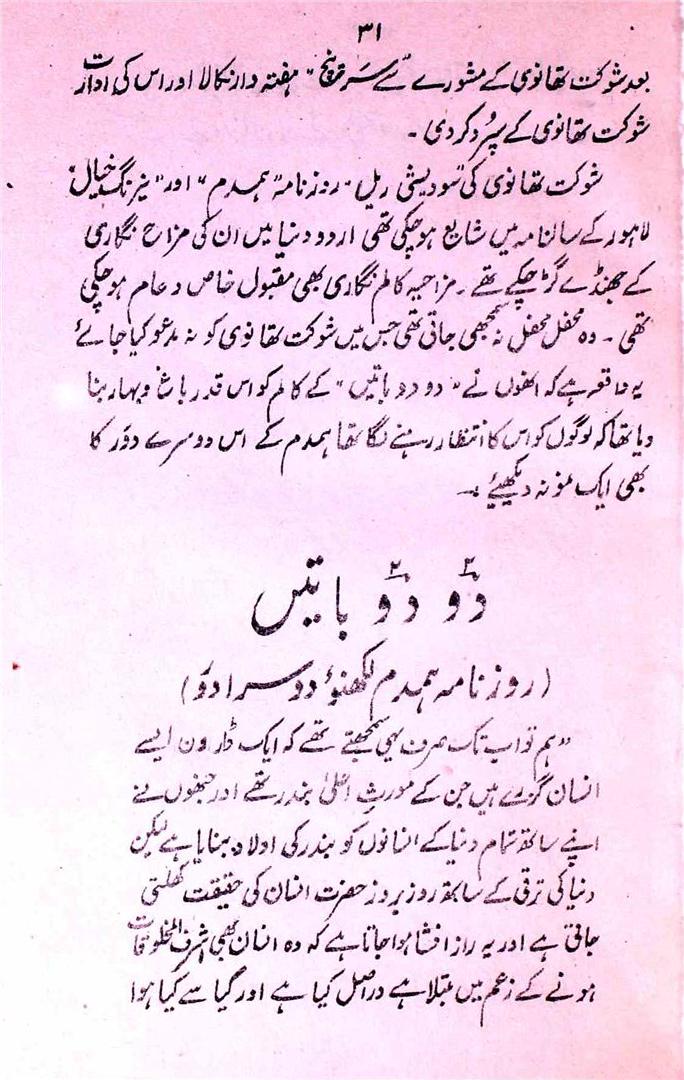 ۳۱
بعد شوکت تھانوی کے مشورے سے "سر پنچ" ہفتہ وار نکالا اور اس کی ادارت
شوکت تھانوی کے سپُرد کر دی ۔
شوکت تھانوی کی "سودیشی ریل" روزنامہ "ہمدم" اور "نیرنگ خیال"
لاہور کے سالنامہ میں شایع ہو چکی تھی اردو دنیا میں ان کی مزاح نگاری
کے جھنڈے گڑ چکے تھے ۔ مزاحیہ کالم نگاری بھی مقبول خاص و عام ہو چکی
تھی ۔ وہ محفل محفل نہ سمجھی جاتی تھی جس میں شوکت تھانوی کو نہ مدعو کیا جائے
یہ واقعہ ہے کہ انھوں نے "دو دو باتیں" کے کالم کو اس قدر باغ و بہار بنا
دیا تھا کہ لوگوں کو اس کا انتظار رہنے لگا تھا ہمدم کے اس دوسرے دَور کا
بھی ایک نمونہ دیکھیئے :۔
دو۲ دو۲ باتیں
(روزنامہ ہمدم لکھنؤ دوسرا دَور)
"ہم تو اب تک صرف یہی سمجھتے تھے کہ ایک ڈارون ایسے
انسان گزرے ہیں جن کے مورثِ اعلیٰ بندر تھے اور جنھوں نے
اپنے ساتھ تمام دنیا کے انسانوں کو بندر کی اولاد بنایا ہے لیکن
دنیا کی ترقی کے ساتھ روز بروز حضرت انسان کی حقیقت کھلتی
جاتی ہے اور یہ راز افشا ہوا جاتا ہے کہ وہ انسان بھی اشرف المخلوقات
ہونے کے زعم میں مبتلا ہے دراصل کیا ہے اور کیا سے کیا ہوا